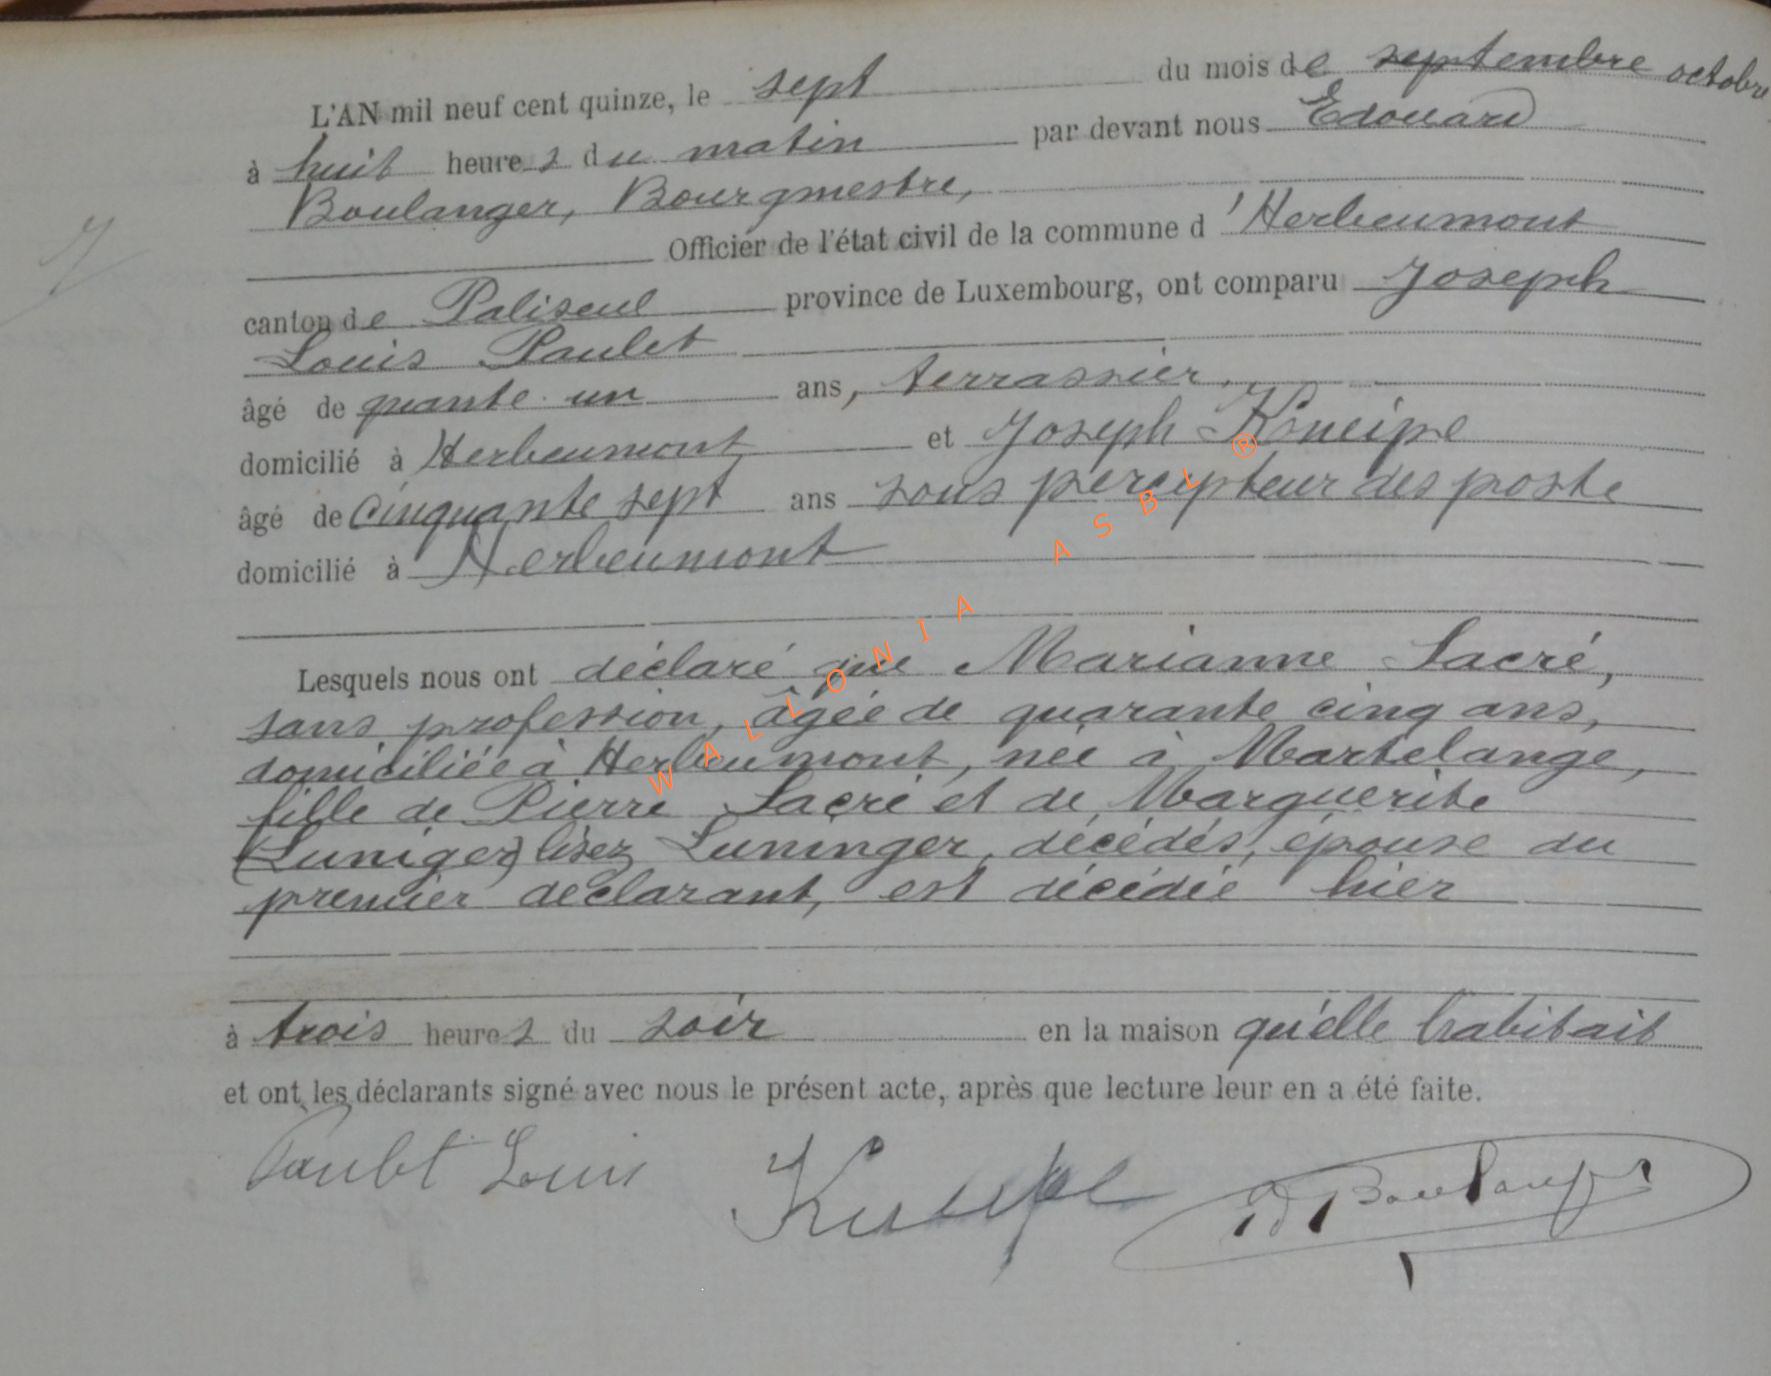 L'AN mil neuf cent quinze, le sept du mois de septembre octobre
à huit heures du matin par devant nous Edouard
Boulanger, Bourgmestre,
Officier de l'état civil de la commune d'Herbeumont
canton de Paliseul province de Luxembourg, ont comparu Joseph
Louis Paulet
âgé de quante un ans, terrassier,
domicilié à Herbeumont et Joseph
âgé de cinquante sept ans sous percepteur des poste
domicilié à Herbeumont
Lesquels nous ont déclaré que Marianne Sacré,
sans profession, âgée de quarante cinq ans,
domiciliée à Herbeumont, née à Martelange,
fille de Pierre Sacré et de Marguerite
(Luniger) lisez Luninger, décédés, épouse du
premier déclarant, est décédée hier
à trois heures du soir en la maison qu'elle habitait
et ont les déclarants signé avec nous le présent acte, après que lecture leur en a été faite.
Paulet Louis Ed Boulanger
WALLONIA ASBL ®